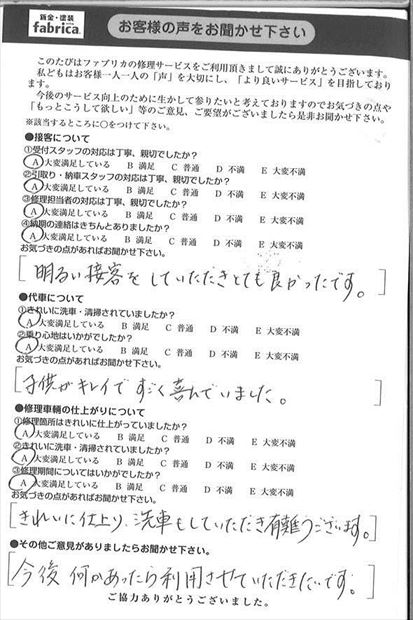 鈑金・塗装
fabrica.
お客様の声をお聞かせ下さい
このたびはファブリカの修理サービスをご利用頂きまして誠にありがとうございます。
私どもはお客様一人一人の「声」を大切にし、「より良いサービス」を目指しており
ます。
今後のサービス向上のために生かして参りたいと考えておりますのでお気づきの点や
「もっとこうして欲しい」等のご意見、ご要望がございましたら是非お聞かせ下さい。
※該当するところに○をつけて下さい。
●接客について
①受付スタッフの対応は丁寧、親切でしたか?
A 大変満足している B 満足 C 普通 D 不満 E 大変不満
②引取り・納車スタッフの対応は丁寧、親切でしたか?
A 大変満足している B 満足 C 普通 D 不満 E 大変不満
③修理担当者の対応は丁寧、親切でしたか?
A 大変満足している B 満足 C 普通 D 不満 E 大変不満
④納期の連絡はきちんとありましたか?
A 大変満足している B 満足 C 普通 D 不満 E 大変不満
お気づきの点があればお聞かせ下さい。
明るい接客をしていただきとても良かったです。
●代車について
①きれいに洗車・清掃されていましたか?
A 大変満足している B 満足 C 普通 D 不満 E 大変不満
②乗り心地はいかがでしたか?
A 大変満足している B 満足 C 普通 D 不満 E 大変不満
お気づきの点があればお聞かせ下さい。
子供がキレイですごく喜んでいました。
●修理車輌の仕上がりについて
①修理箇所はきれいに仕上がっていましたか?
A 大変満足している B 満足 C 普通 D 不満 E 大変不満
②きれいに洗車・清掃されていましたか?
A 大変満足している B 満足 C 普通 D 不満 E 大変不満
③修理期間についてはいかがでしたか?
A 大変満足している B 満足 C 普通 D 不満 E 大変不満
お気づきの点があればお聞かせ下さい。
きれいに仕上り、洗車もしていただき有難うございます。
●その他ご意見がありましたらお聞かせ下さい。
今後何かあったら利用させていただきたいです。
ご協力ありがとうございました。